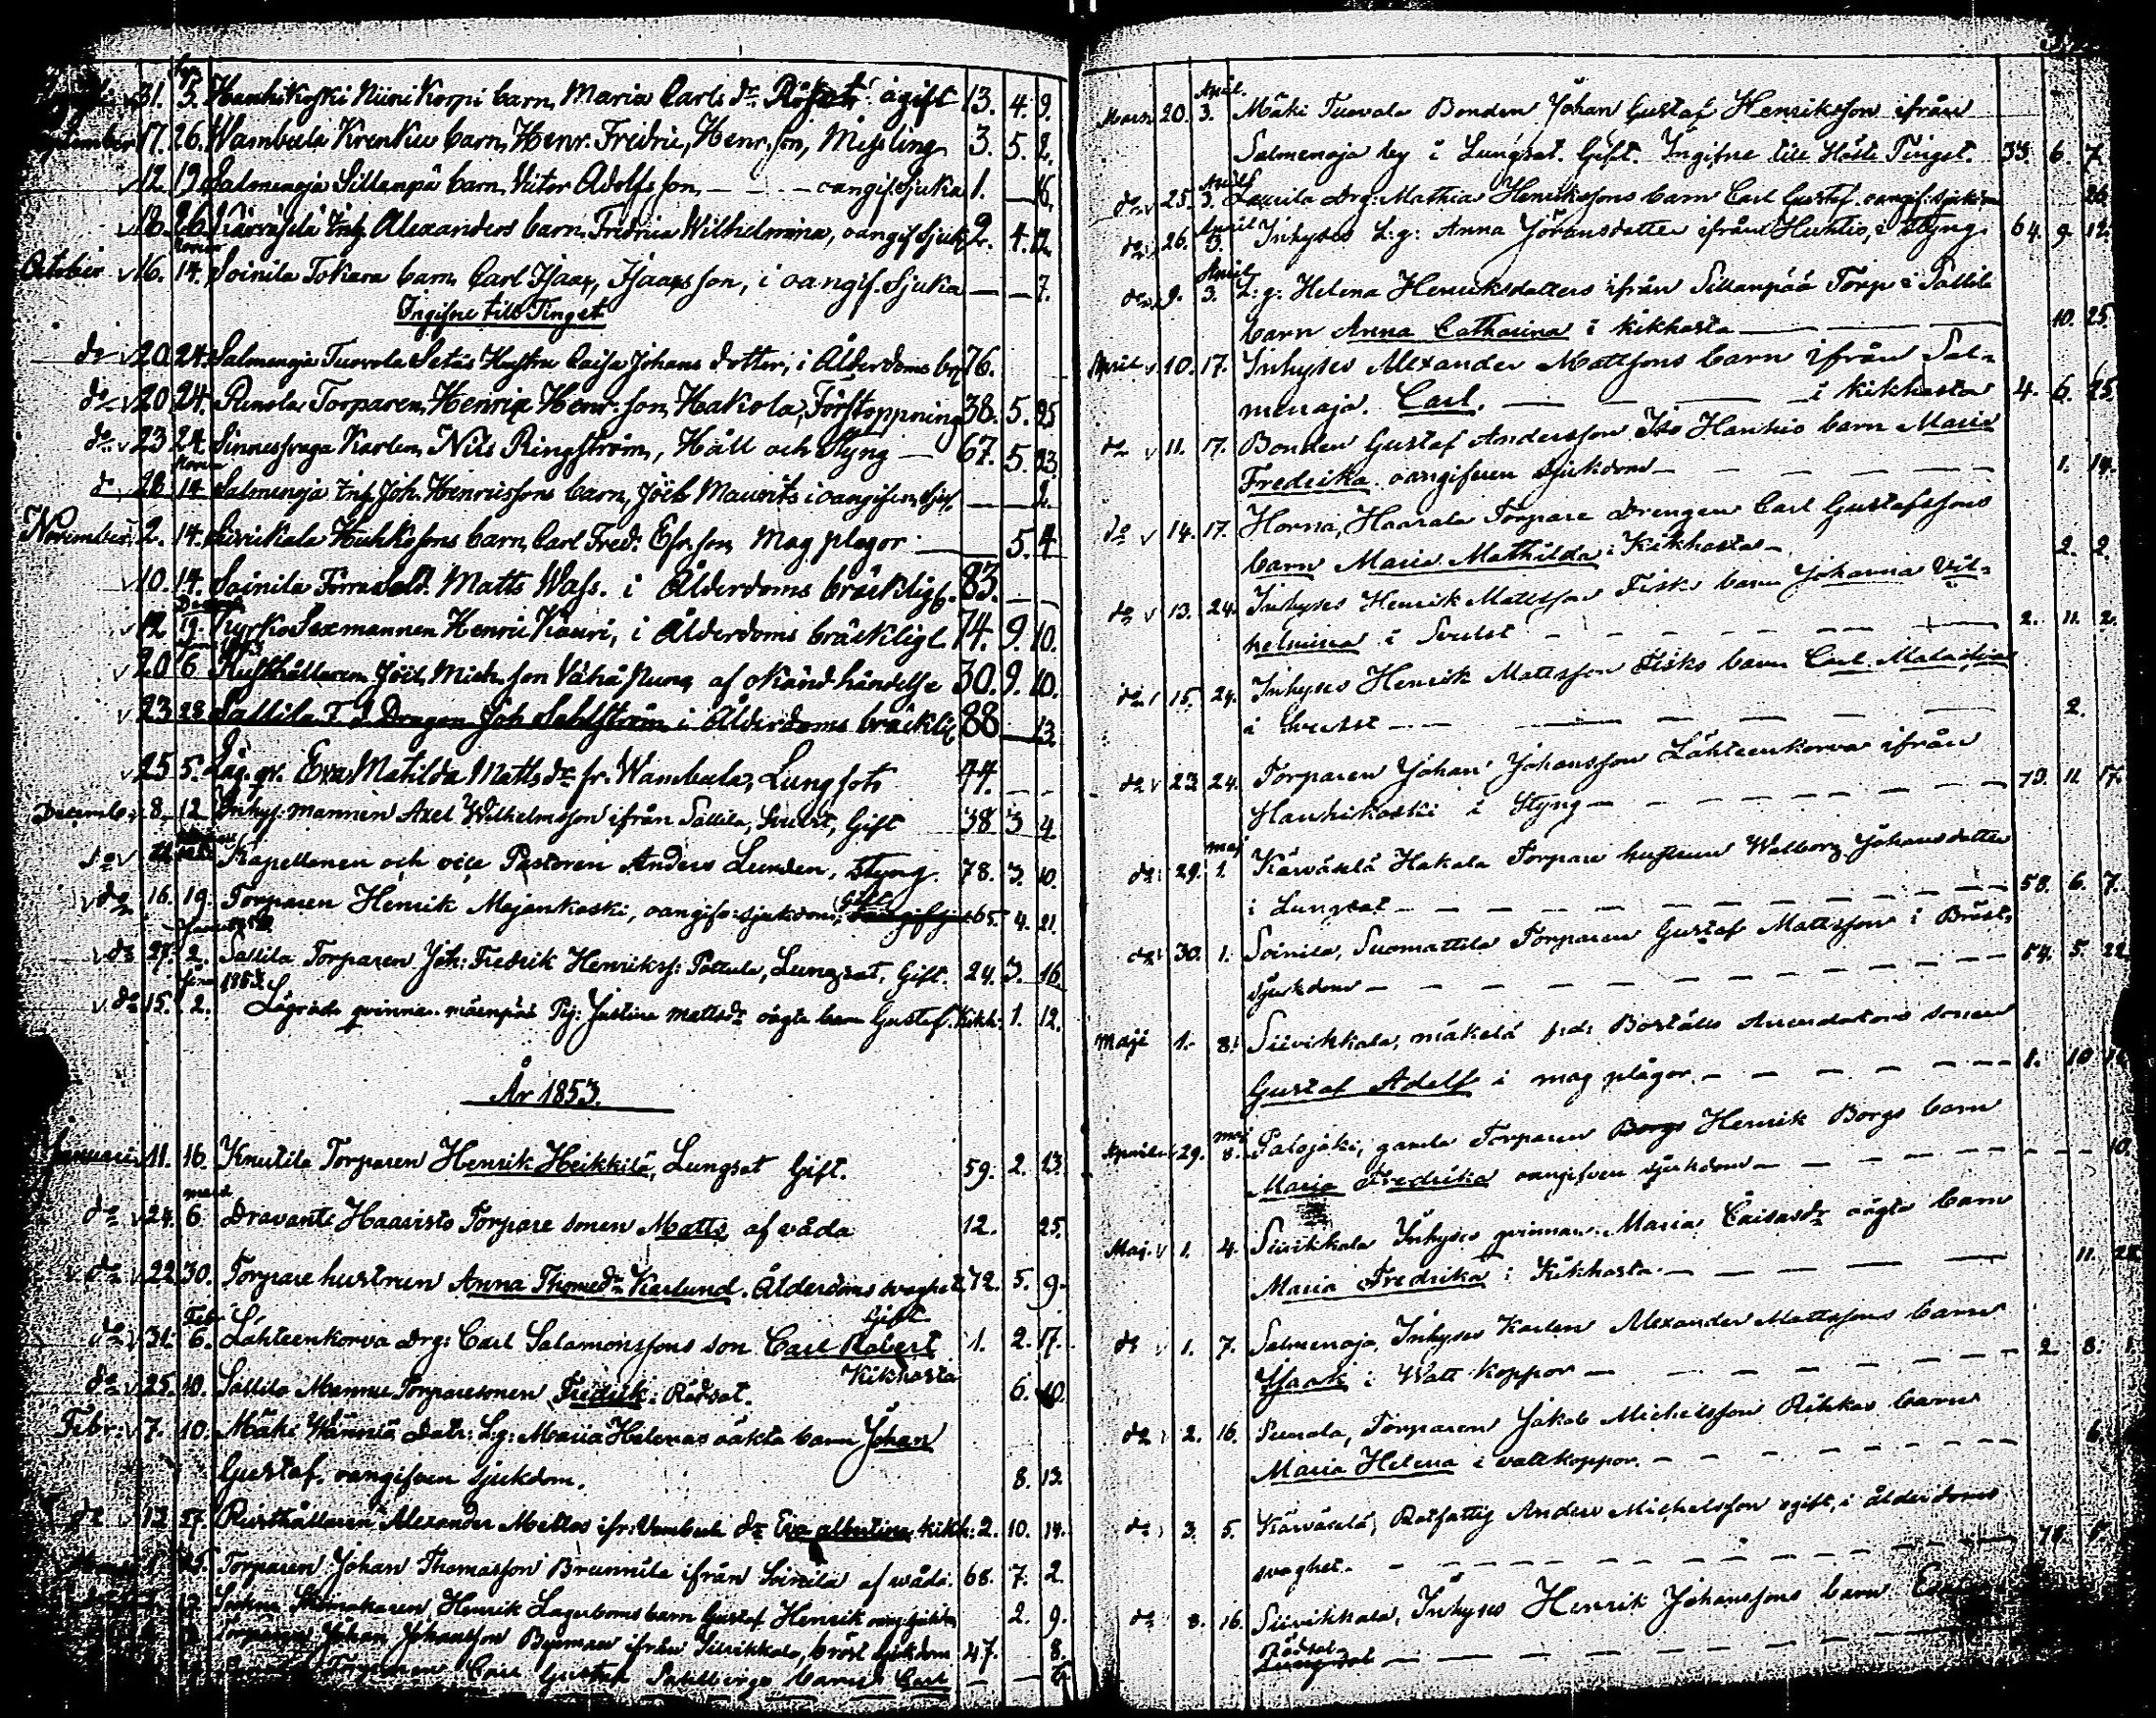 31. 5. Hanhikoski Niini Korpi barn, Maria Carls dr ogift 13. 4. 9.
17. 26. Wambula Krenku barn, Henr. Fredric, Henr. son, Messling 3. 5. 2.
12. 19. Salmenoja Sillanpä barn, Victor Adolfsson, — oangif. sjuka 1. — 16.
18. 26. Kärväselä Inh. Alexanders barn, Fredrica Wilhelmina, oangif sjuk 2. 4. 12
October 16. 14. Soinila Tokara barn, Carl Isaac, Isaacsson, i oangif. Sjuka — — 7.
Ingifne till Tinget
do 20. 24. Salmenoja Tuovola Setäs Hustru Caisa Johans dotter, i Ålderdoms br 76.
do 20 24. Punola Torparen, Henric Henr. son, Hakola, Förstoppning 38. 5. 25
do 23 24. Sinnessvaga Karlen, Nils Ringström, Håll och Styng — 67. 5. 23.
do 28 14 Salmenoja Inh. Joh. Henricssons barn, Joel Maurits i oangifen sjuk. — — 2.
November 2. 14. Sivikala Huhkssons barn, Carl Fred. son, Mag plågor — 5. 4
10. 14. Soinila Förra Sold. Matts Wass. i Ålderdoms bräcklig. 83. — —
12 19. Kyrko Sexmannen Henric Kauri, i Ålderdoms bräckligt 74. 9. 10.
20 6 Rusthållaren, Joel, Mich. son Vähä Nuna af okänd händelse 30. 9. 10.
23 28 Sallila T. d. Dragon Joh Sahlström i Ålderdoms bräcklig 88 — 13
25 5. Lag. qv. Eva Matilda Matts dr fr. Wambula, Lungsot 44. — —
December 8. 12 Inhys: mannen Axel Wilhelmsson ifrån Sallila, Svulst, Gift 38 3 4.
do Kapellanen och vice Pastoren Anders Lunden, Styng. 78. 3. 10.
do 16. 19. Torparen Henrik Majankoski, oangifv: sjukdom, Gift 65. 4. 21.
do 27. 2. Sallila Torparen Joh: Fredrik Henrikss: Pottula, Lungsot, Gift. 24. 3. 16.
Jan 1853.
do 15. 2. Lägrade qvinnan Pig: Justina Mattsdr oägta barn Gustaf. Kikh: 1. 12.
År 1853.
Januarii 11. 16. Knutila Torparen Henrik Heikkilä, Lungsot Gift. 59. 2. 13.
mars
do 24. 6 Dravante Haavisto Torpare sonen Matts, af våda 12. 25.
do 22 30. Torpare hustrun Anna Thomedr Karlund. Ålderdoms svaghet 72. 5. 9.
Febr. Gift
do 31. 6. Lähteenkorva Drg: Carl Salamonssons son Carl Robert 1. 2. 17.
Kikhosta
do 25. 10. Sallila Mannu Torparesonen Fredrik: Rödsot. 6. 10.
Febr: 7. 10. Mäki Wännilä Dotr: L:g: Maria Helenas oäkta barn Johan
Gustaf, oangifven sjukdom. 8. 13.
do 13 27. Rusthållaren Alexander Mattas ifr: Vambula dr Eva albertina kikh: 2. 10. 14.
25. Torparen Johan Thomasson Brunnila ifrån Soinila af våda. 68. 7. 2.
12 Henrik Lagerboms barn Gustaf Henrik 2. 9.
Torparen Johan Johansson Byman ifrån Siivikkala, bröst sjukdom 47. 8.
Torparen Carl Gustaf barn Carl — —
April
Mars 20. 3. Mäki Tuovala Bonden Johan Gustaf Henriksson ifrån
Salmenoja by i Lungsot. Gift. Ingifne till Höste Tinget. 33. 6. 7.
April
do 25. 3. Drg: Mathias Henrikssons barn Carl Gustaf. oangif: sjukdom 26.
April
do 26. 3. Inhyses L:g: Anna Jöransdotter ifrån Huhtis, i Styng 64. 9. 12.
April
do 9. 3. L:g: Helena Henriksdotters ifrån Sillanpää Torp i Sallila
barn Anna Catharina i kikhosta — 10. 25.
April 10. 17. Inhyses Alexander Mattsons barn ifrån Sal-
menoja. Carl. — i kikhosta 4. 6. 25.
do 11. 17. Bonden Gustaf Andersson Iso Hanhis barn Maria
Fredrika oangifven sjukdom — 1. 14.
do 14. 17. Horna, Haarala Torpare Drengen Carl Gustafssons
barn Maria Mathilda i Kikhosta — 2. 2.
do 13. 24. Inhyses Henrik Mattsson Fisks barn Johanna Vil-
helmina i Svulst — 2. 11. 2.
do 15. 24. Inhyses Henrik Mattsson Fisks barn Carl
i Svulst — 2.
do 23. 24. Torparen Johan Johansson Lähteenkorva ifrån
Hanhikoski i Styng — 73. 11. 17.
maj
do 29. 1. Kärväselä Hakala Torpare hustrun Walborg Johansdotter
i Lungsot — 58. 6. 7.
do 30. 1. Soinila, Suomattila Torparen Gustaf Mattsson i Bröst-
sjukdom — 54. 5. 22
Maji 1. 8. Siivikkala, mäkelä Boställs Arrendators sonen
Gustaf Adolf i mag plågor. — 1. 10
maj
Aprilis 29. 8. Palojoki, gamla Torparen Borgs Henrik Borgs barn
Maria Fredrika oangifven sjukdom — 10.
Maj. 1. 4. Siivikkala Inhyses qvinnan Maria Caisasdr oägta barn
Maria Fredrika i Kikhosta. — 11. 28
do 1. 7. Salmenoja, Inhyses Karlen Alexander Mattssons barn
Isaak i Watt koppor — 2. 8. 1
do 2. 16. Punola, Torparen Jakob Michelsson Rikkas barn
Maria Helena i vattkoppor. — 6.
do 3. 5. Kärväselä, Rotfattig Anders Michelsson ogift, i ålderdoms
svaghet. —
do 8. 16. Siivikkala, Inhyses Henrik Johanssons barn
Rödsot
Lungsot —